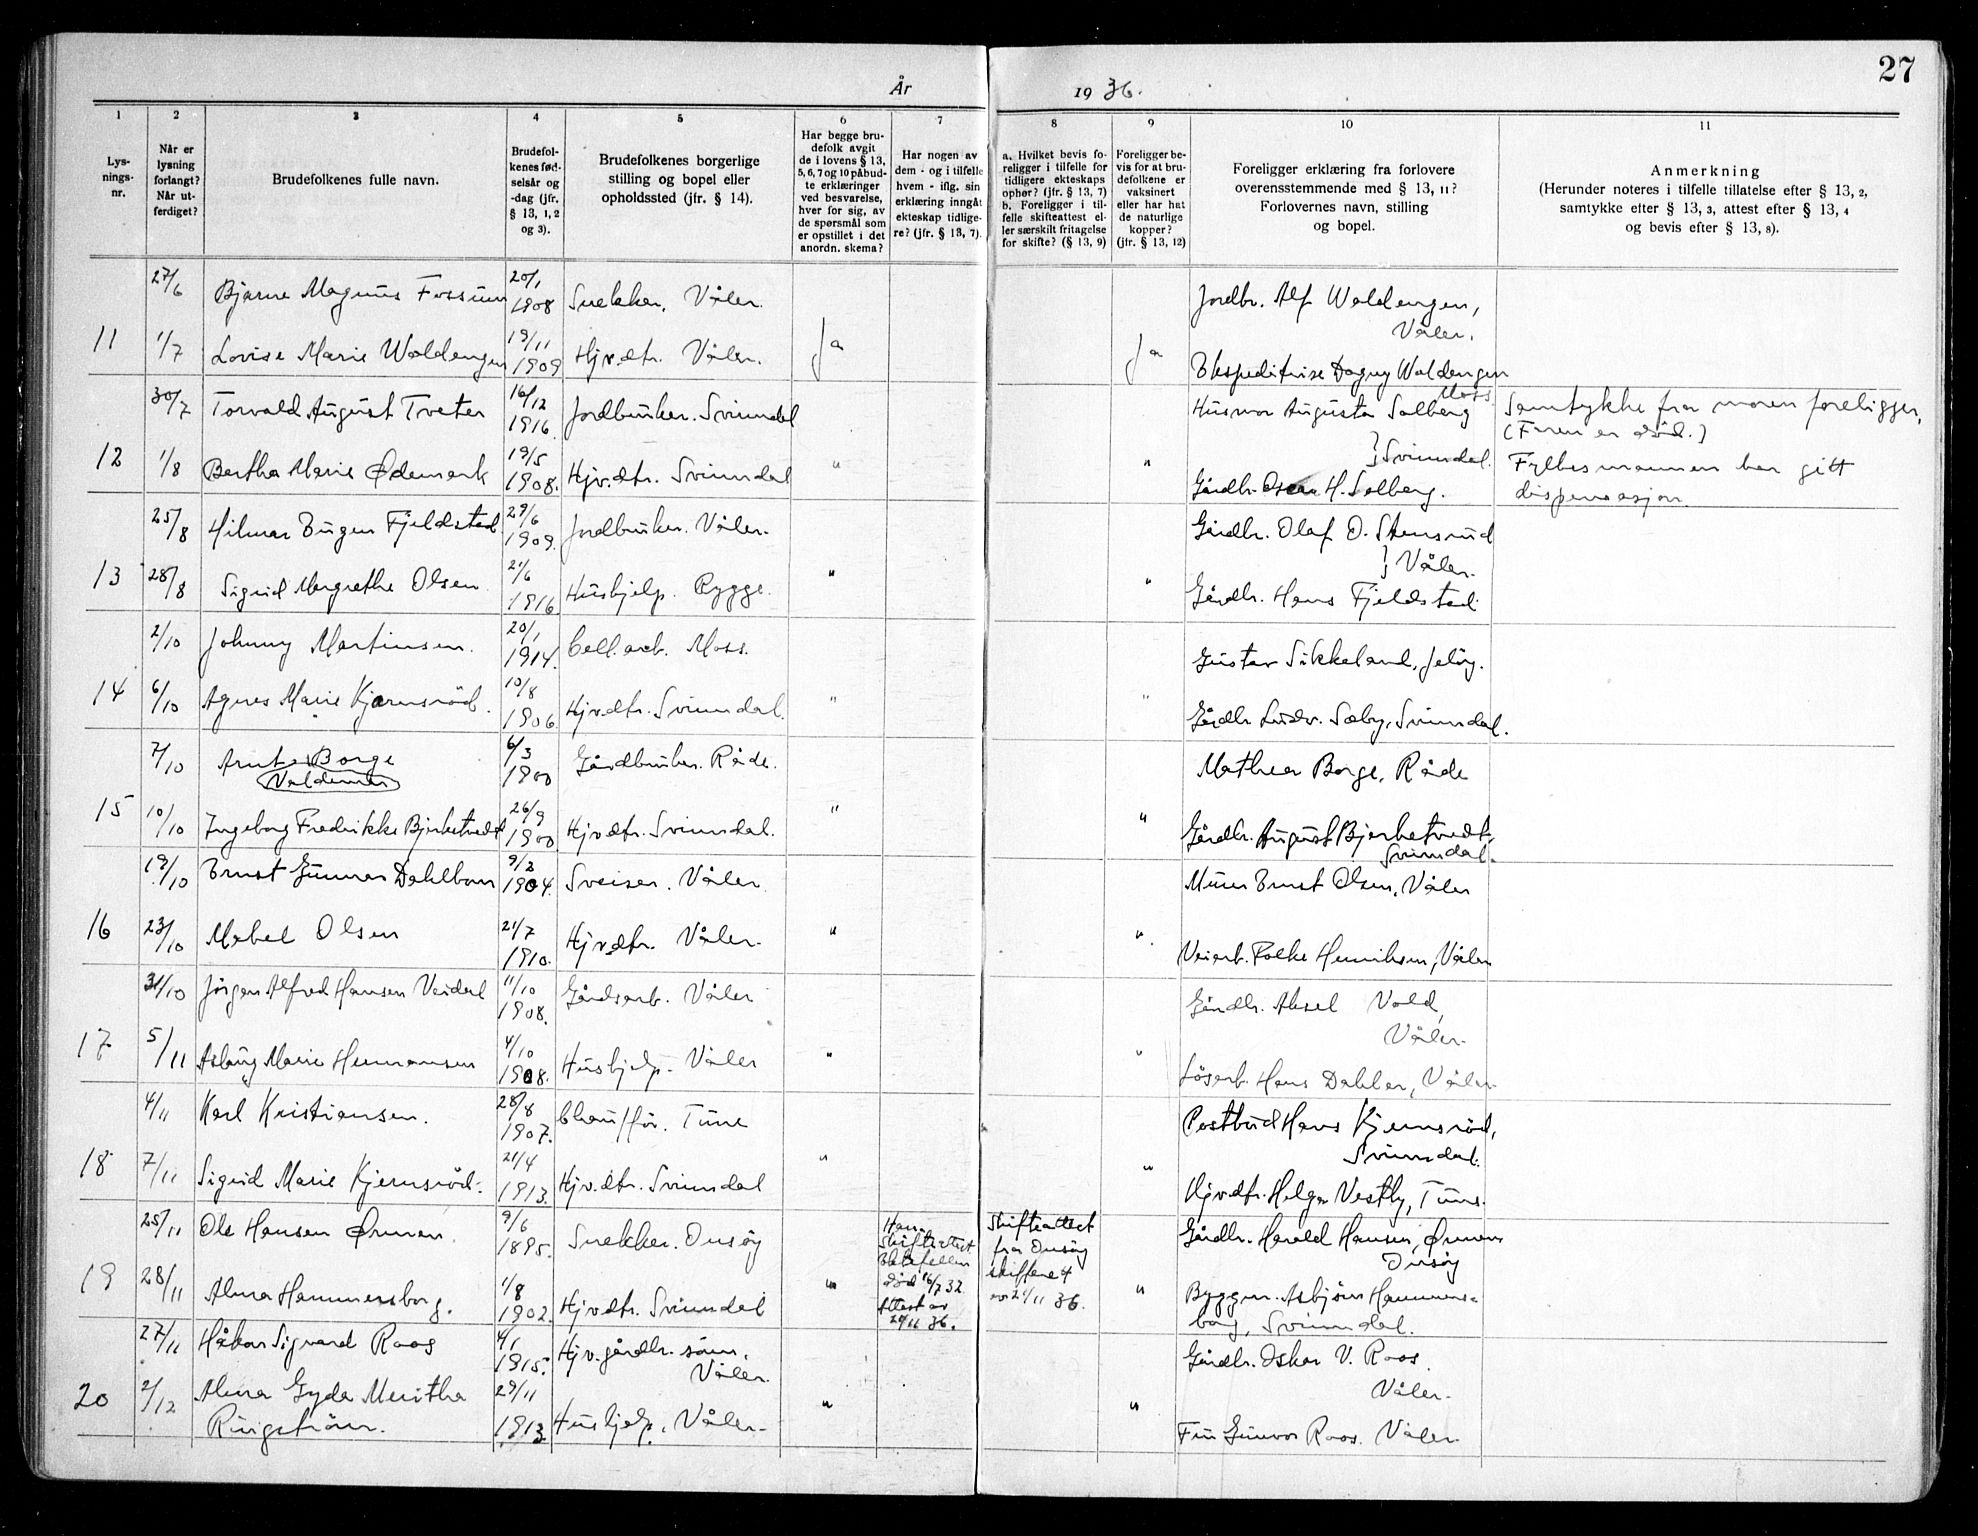 27
År 1936.
1 2 3 4 5 6 7 8 9 10 11
Lys-
nings-
nr.
Når er
lysning
forlangt?
Når ut-
ferdiget?
Brudefolkenes fulle navn.
Brudefol-
kenes fød-
selsår og
-dag (jfr.
§ 13, 1, 2
og 3).
Brudefolkenes borgerlige
stilling og bopel eller
opholdssted (jfr. § 14).
Har begge bru-
defolk avgit
de i lovens § 13,
5, 6, 7 og 10 påbud-
te erklæringer
ved besvarelse,
hver for sig, av
de spørsmål som
er opstillet i det
anordn. skema?
Har nogen av
dem - og i tilfelle
hvem - iflg. sin
erklæring inngåt
ekteskap tidlige-
re? (jfr. § 13, 7).
a. Hvilket bevis fo-
religger i tilfelle for
tidligere ekteskaps
ophør? (jfr. § 13, 7)
b. Foreligger i til-
felle skifteattest el-
ler særskilt fritagelse
for skifte? (§ 13, 9)
Foreligger be-
vis for at bru-
defolkene er
vaksinert
eller har hat
de naturlige
kopper?
(jfr. § 13, 12)
Foreligger erklæring fra forlovere
overensstemmende med § 13, 11?
Forlovernes navn, stilling
og bopel.
Anmerkning
(Herunder noteres i tilfelle tillatelse efter § 13, 2,
samtykke efter § 13, 3, attest efter § 13, 4
og bevis efter § 13, 8).
27/6 Bjarne Magnus Fossum 20/1 1908 Snekker. Våler. Jordbr. Alf Waldengen,
Våler.
11 1/7 Lovise Marie Waldengen 19/11 1909 Hjv.dtr. Våler. Ja Ja Ekspeditrise Dagny Waldengen
Moss.
30/7 Torvald August Tveter 16/12 1916. Jordbruker. Svinndal Husmor Augusta Solberg Samtykke fra moren foreligger.
(Faren er død.)
12 1/8 Bertha Marie Ødemark 19/5 1908. Hjv.dtr. Svinndal " " } Svinndal.
Gårdbr. Oscar H. Solberg. Fylkesmannen har gitt
dispensasjon.
25/8 Hilmar Eugen Fjeldstad 29/6 1909. Jordbruker. Våler. Gårdbr. Olaf O. Stensrud
} Våler.
13 28/8 Sigrid Margrethe Olsen 21/6 1916 Hushjelp. Rygge. " " Gårdbr. Hans Fjeldstad
2/10 Johnny Martinsen. 20/1 1914. Cell.arb. Moss. Gustav Sikkeland, Jeløy.
14 6/10 Agnes Marie Kjernsrød. 10/8 1906. Hjv.dtr. Svinndal. " " Gårdbr. Ludv. Sæby, Svinndal.
7/10 Arnt Borge 6/3 1900 Gårdbruker. Råde. Mathea Borge, Råde
Valdemar
15 10/10 Ingeborg Fredrikke Bjerketvedt 26/9 1900. Hjv.dtr. Svinndal. " " Gårdbr. August Bjerketvedt,
Svinndal.
19/10 Ernst Gunnar Dahlbom 9/2 1904. Sveiser. Våler. Murer Ernst Olsen, Våler
16 23/10 Mabel Olsen 21/7 1910. Hjv.dtr. Våler. " " Veiarb. Folke Henriksen, Våler
31/10 Jörgen Alfred Hansen Veidal 11/10 1908. Gårdsarb. Våler Gårdbr. Aksel Vold,
Våler.
17 5/11 Aslaug Marie Hermansen 4/10 1908. Hushjelp. Våler " " Løsarb. Hans Dahler, Våler.
4/11 Karl Kristiansen. 28/8 1907. Chauffør. Tune Postbud Hans Kjernsrød,
Svinndal.
18 7/11 Sigrid Marie Kjernsrød. 21/4 1913. Hjv.dtr. Svinndal " " Hjv.dtr. Helga Vestby, Tune.
25/11 Ole Hansen Ørmen. 9/6 1895. Snekker. Onsøy Han.
Skifteattest
Ektefellen
død 16/7 32.
Attest av
20/11 36. Skifteattest
fra Onsøy
skifterett
av 21/11 36. Gårdbr. Harald Hansen, Ørmen
Onsøy
19 28/11 Alma Hammersborg. 1/8 1902. Hjv.dtr. Svinndal " " Byggm. Asbjørn Hammers-
borg, Svinndal.
27/11 Håkon Sigvard Roos 4/1 1915. Hjv. gårdbr. sønn.
Våler. Gårdbr. Oskar V. Roos.
Våler.
20 2/12 Alma Gyda Meritha
Ringstrøm. 29/11 1913 Hushjelp. Våler. " " Fru Gunvor Roos. Våler.